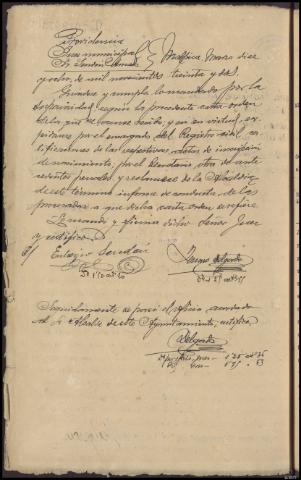 Providencia
Juez municipal
Sr. Malpica Marzo diez
y ocho de mil novecientos treinta y dos.
Guárdese y cumpla lo mandado por la
Superioridad según la precedente carta orden
de la que se acusará recibo, y en su virtud, ex-
pídanse por el encargado del Registro civil
certificaciones de las respectivas actas de inscripción
de nacimiento, por el Secretario otra de ante-
cedentes penales y reclámese de la Alcaldía
de este término informe de conducta de los
procesados a que dicha carta orden se refiere.
Lo manda y firma dicho Señor Juez
y certifico.
Eutasio
Delgado
Seguidamente se pasó el oficio acordado
al Sr. Alcalde de este Ayuntamiento, certifico.
Delgado